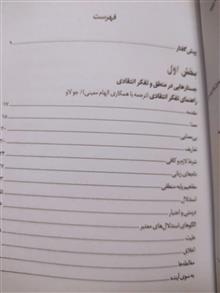 فهرست
پیش‌گفتار ۹
بخش اول
جستارهایی در منطق و تفکر انتقادی
راهنمای تفکر انتقادی (ترجمه با همکاری الهام معینی)/ جو لاو
مقدمه ۱۷
معنا
بی‌معنایی
تعاریف
شرط لازم و کافی
دام‌های زبانی
مفاهیم پایه منطقی
استدلال
درستی و اعتبار
الگوهای استدلال‌های معتبر
علیت
اخلاق
مغالطه‌ها
به سوی آینده